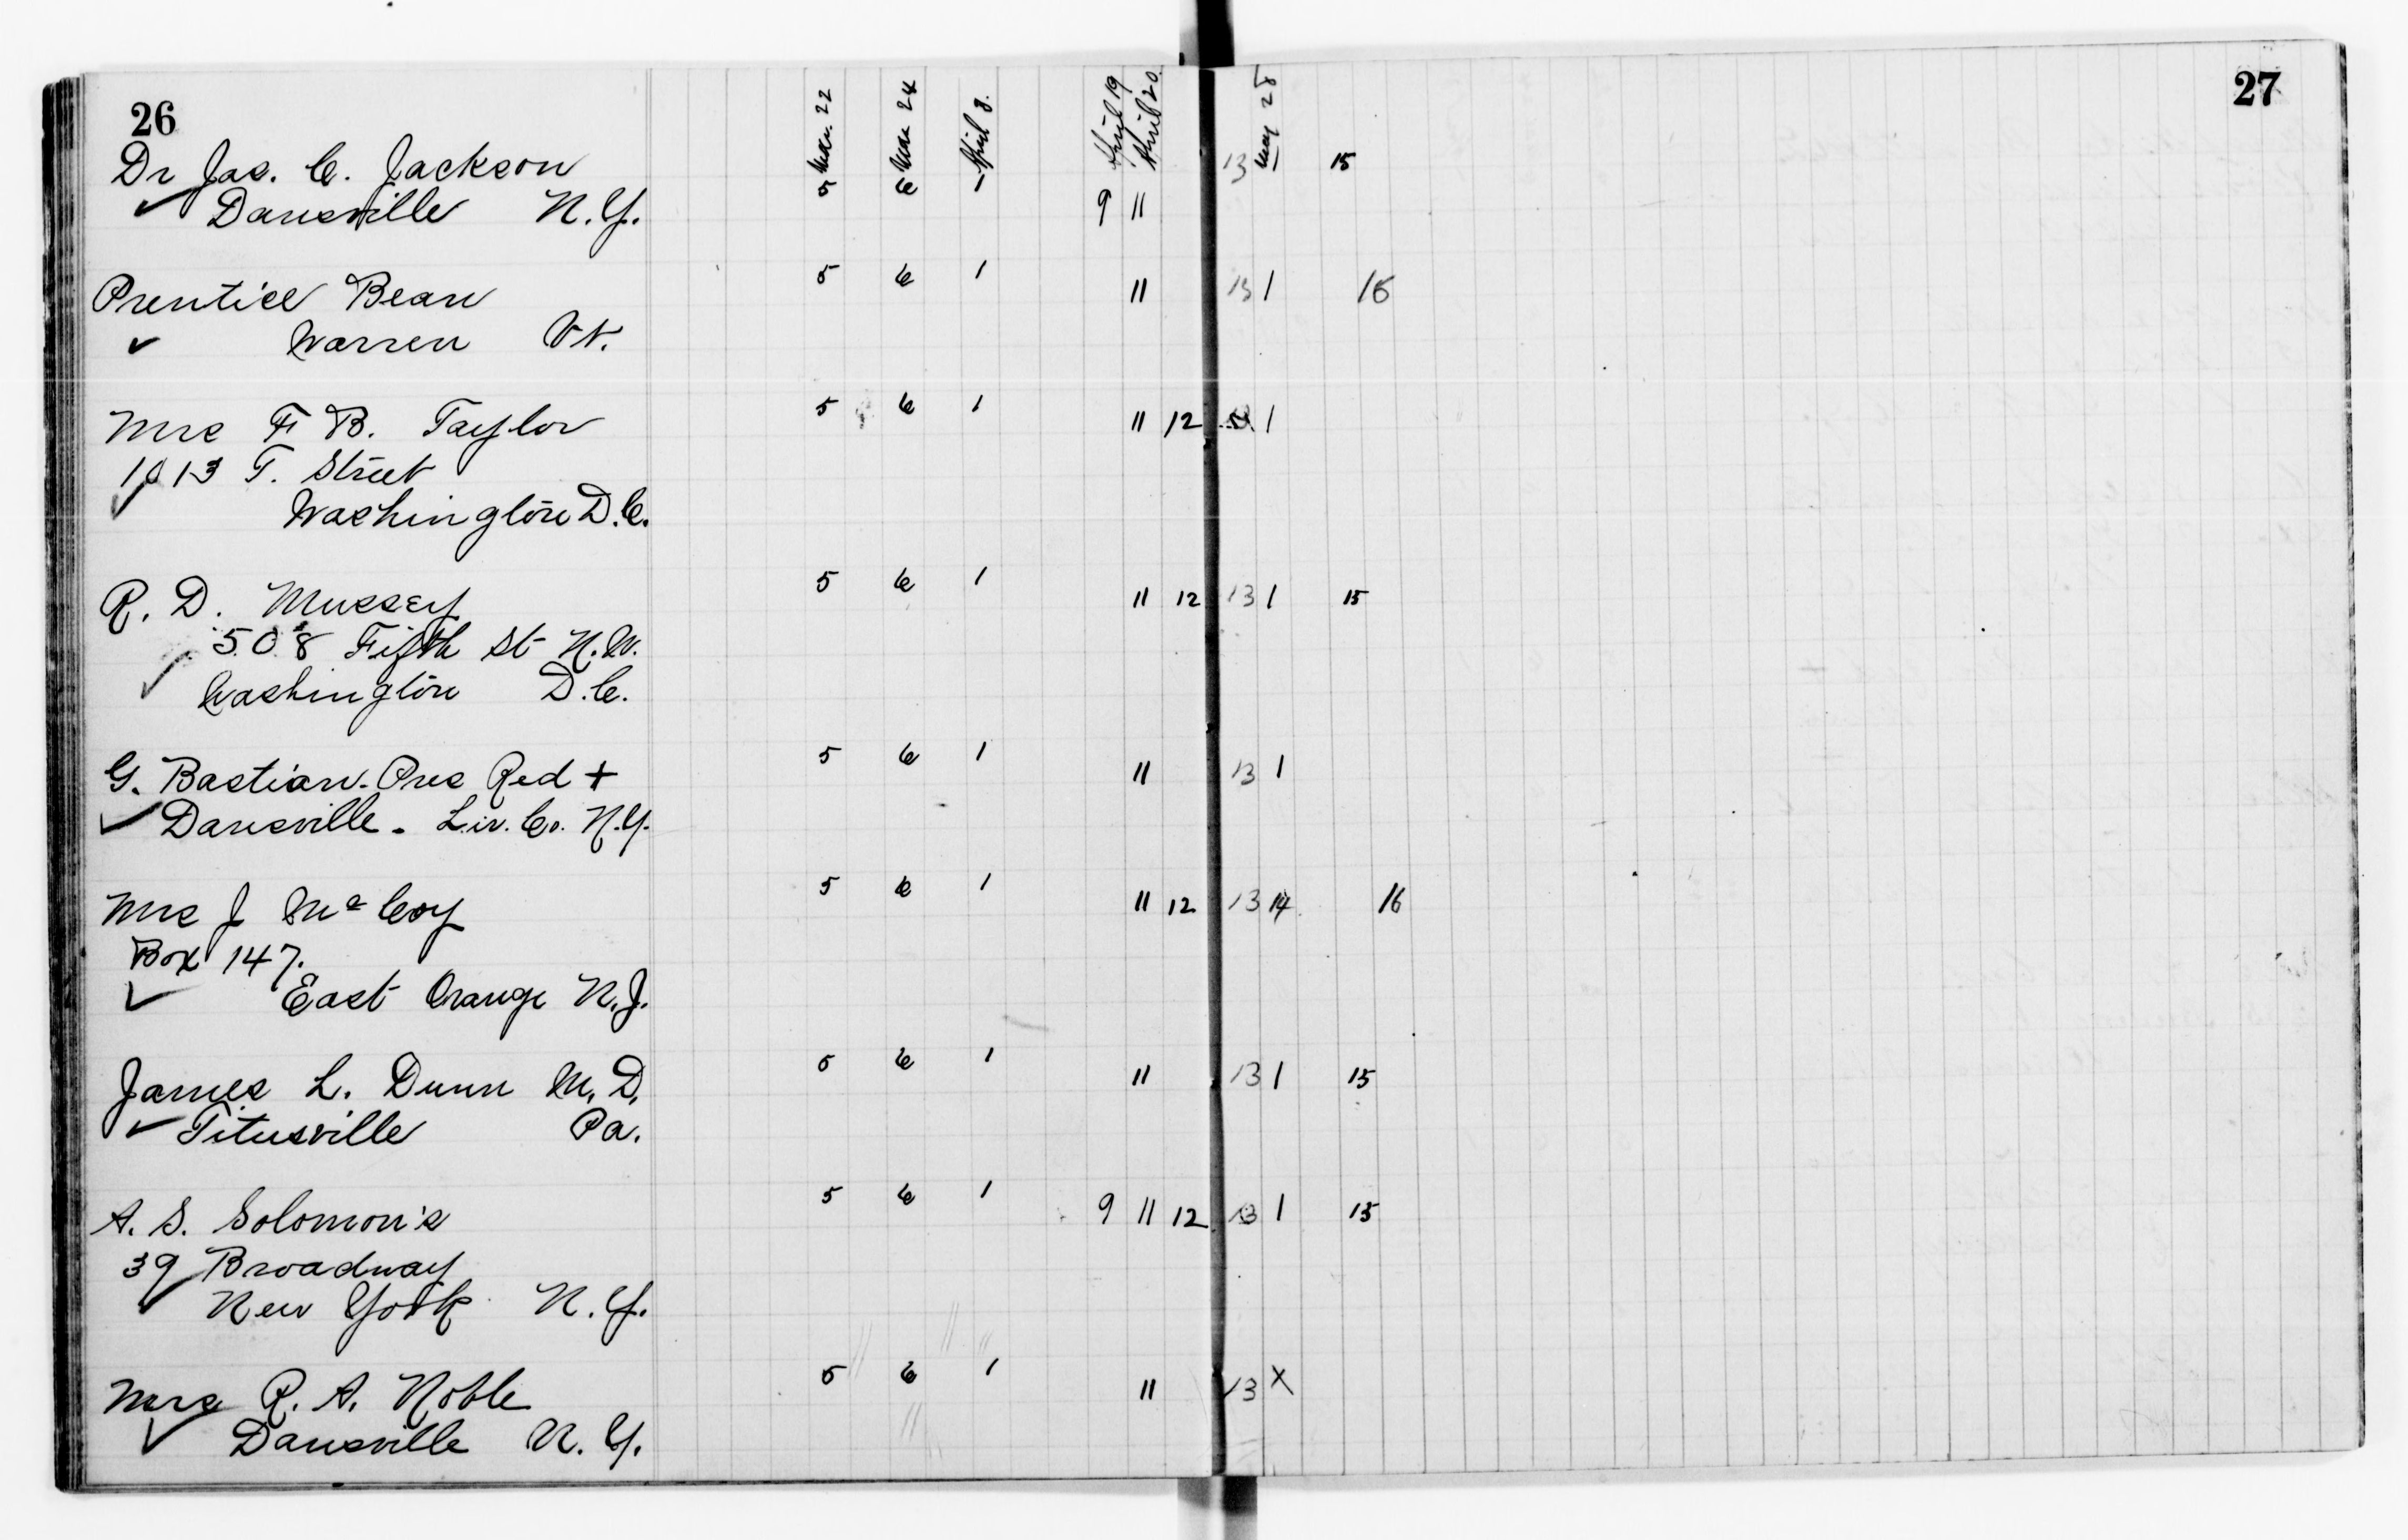 26
27
Mar. 22 Mar 24 April 8. April 19 April 20 May 28
Dr Jas. C. Jackson 5 6 1 13 1 15
Dansville N.Y. 9 11
Prentice Bean 5 6 1 11 13 1 16
Warren Vt.
Mrs F B. Taylor 5 6 1 11 12 1
1013 T. Street
Washington D.C.
R. D. Mussey 5 6 1 11 12 13 1 15
508 Fifth St N.W.
Washington D.C.
G. Bastian. Pres Red + 5 6 1 11 13 1
Dansville. Liv. Co. N.Y.
Mrs J McCoy 5 6 1 11 12 13 14 16
Box 147.
East Orange N.J.
James L. Dunn M.D. 5 6 1 11 13 1 15
Titusville Pa.
A. S. Solomon's 5 6 1 9 11 12 13 1 15
39 Broadway
New York N.Y.
Mrs R. A. Noble 5 6 1 11 13 X
Dansville N.Y.